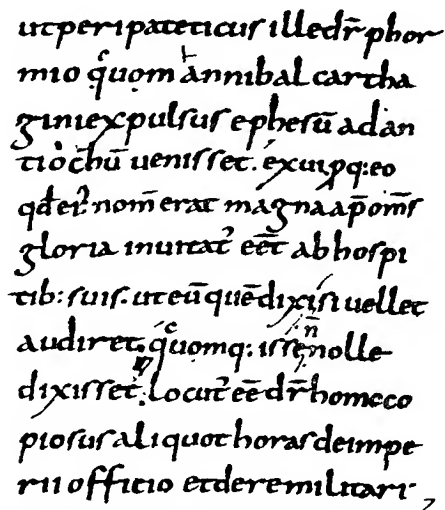 utperipateticus illedr̄ phor
mio q̊uom ⱶannibal cartha
giniexpulsus ephesū adan
tiochū uenisset. exuiꝓq:eo
qđei'. nom̄ erat magnaap̄om̄s
gloria inuitat' eēt abhospi
tib: suis. uteūquēdixisi uellet
audiret. q̊uomq: issen̄nolle
dixisset. locut' eē dr̄homoco
piosus aliquot horas deimpe
rii officio etderemilitari,